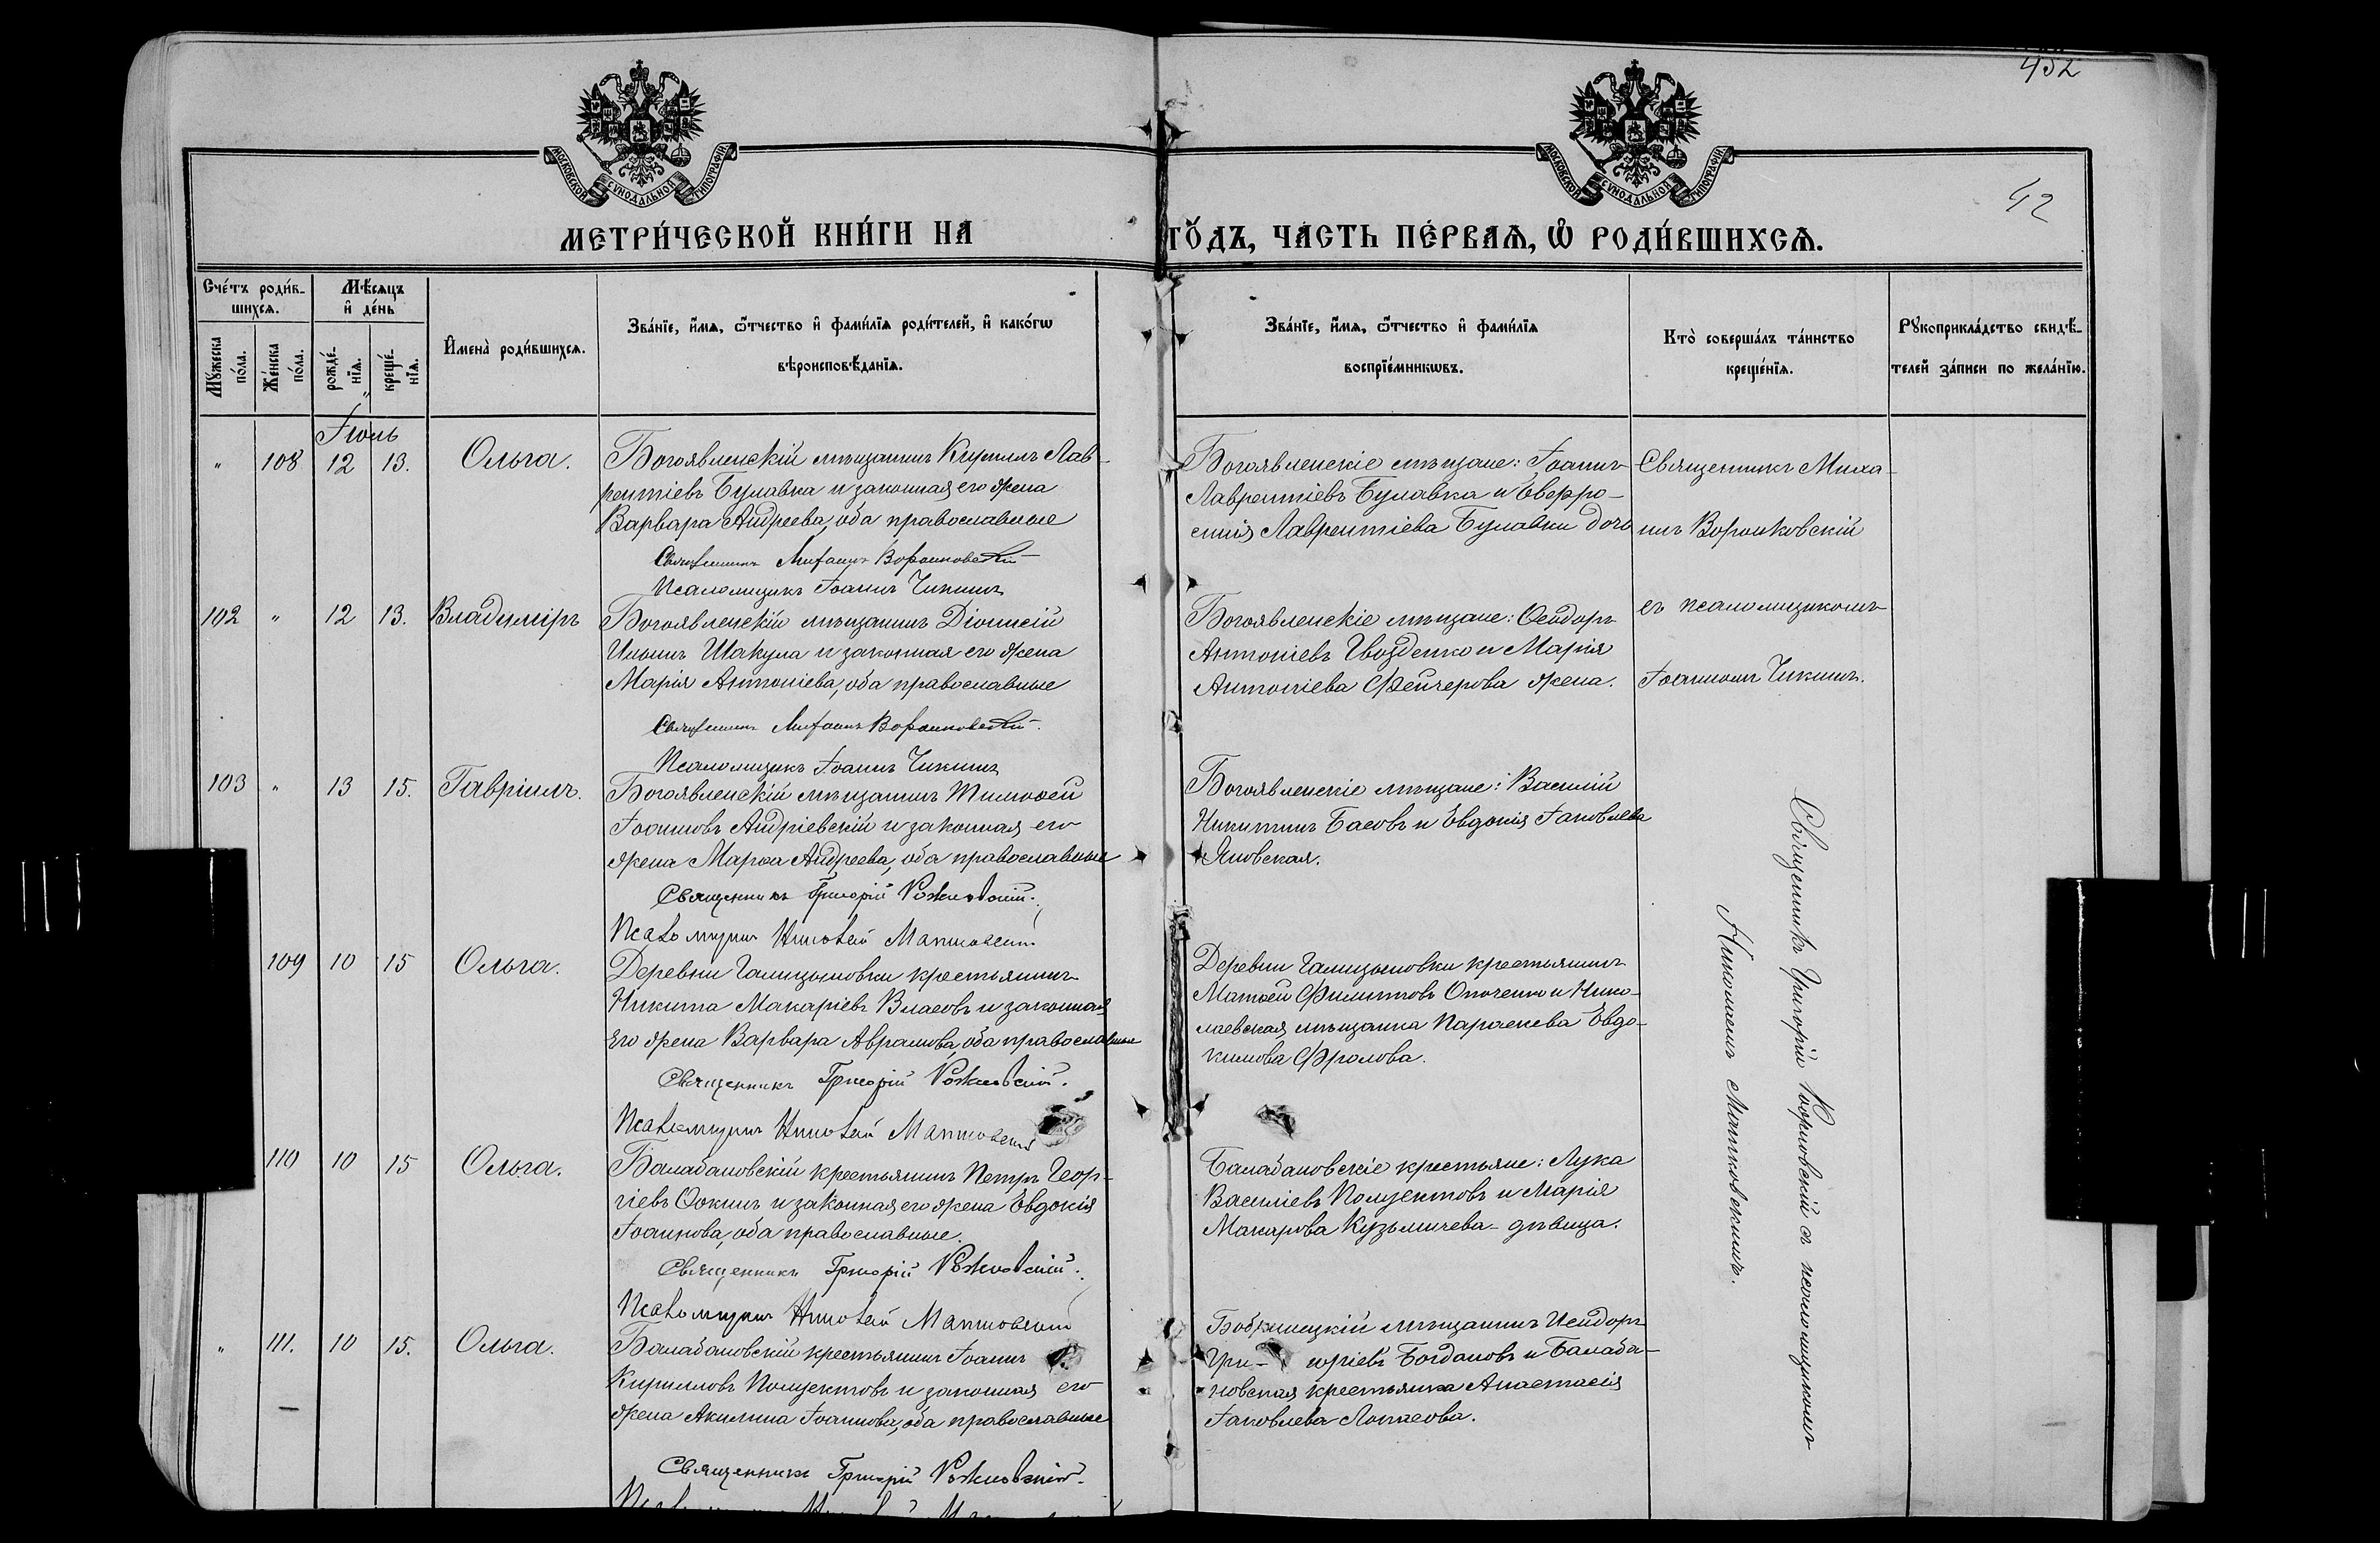 452
42
МОСКОВСКОЙ СѴНОДАЛЬНОЙ ТИПОГРАФІИ
МОСКОВСКОЙ СѴНОДАЛЬНОЙ ТИПОГРАФІИ
МЕТРИ́ЧЕСКОЙ КНИ́ГИ НА ГО́ДЪ, ЧА́СТЬ ПЕ́РВАѦ, Ѽ РОДИ́ВШИХСѦ.
Сче́тъ роди́в-
шихсѧ.
Мꙋ́жеска по́ла.
Же́нска по́ла.
Мѣ́сѧцъ
и҆ де́нь
рожде́-
нїѧ.
креще́-
нїѧ.
И҆мена̀ роди́вшихсѧ.
Зва́нїе, и҆́мѧ, ѻ҆́тчество и҆ фами́лїѧ роди́телей, и҆ како́гѡ
вѣроисповѣ́данїѧ.
Зва́нїе, и҆́мѧ, ѻ҆́тчество и҆ фами́лїѧ
воспрїе́мникѡвъ.
Кто̀ соверша́лъ та́инство
креще́нїѧ.
Рꙋкоприкла́дство свидѣ́-
телей за́писи по жела́нїю.
Іюль
" 108 12 13. Ольга.
Богоявленскій мѣщанинъ Кириллъ Лав-
рентіевъ Булавка и законная его жена
Варвара Андреева, оба православные
Священникъ Михаилъ Воронковскій
Псаломщикъ Іоаннъ Чикинъ
Богоявленскіе мѣщане: Іоаннъ
Лаврентіевъ Булавка и Евфро-
синія Лаврентіева Булавки дочь
Священникъ Миха-
илъ Воронковскій
съ псаломщикомъ
Іоанномъ Чикинъ.
102 " 12 13. Владиміръ
Богоявленскій мѣщанинъ Діонисій
Ильинъ Шакула и законная его жена
Марія Антоніева, оба православные
Священникъ Михаилъ Воронковскій.
Псаломщикъ Іоаннъ Чикинъ
Богоявленскіе мѣщане: Ѳеодоръ
Антоніевъ Гвозденко и Марія
Антоніева Фейчерова жена.
103 " 13 15. Гавріилъ.
Богоявленскій мѣщанинъ Тимоѳей
Іоанновъ Андріевскій и законная его
жена Марѳа Андреева, оба православные
Священникъ Григорій
Псаломщикъ
Богоявленскіе мѣщане: Василій
Никитинъ Басовъ и Евдокія Іаковлева
Яновская.
Священникъ Григорій съ псаломщикомъ
109 10 15 Ольга.
Деревни Галицыновки крестьянинъ
Никита Макаріевъ Власовъ и законная
его жена Варвара Аврамова, оба православные
Священникъ Григорій
Псаломщикъ
Деревни Галицыновки крестьянинъ
Матѳей Филипповъ Опоченко и Нико-
лаевская мѣщанка Параскева Евдо-
кимова Фролова.
110 10 15 Ольга.
Балабановскій крестьянинъ Петръ Геор-
гіевъ Ѳокинъ и законная его жена Евдокія
Іоаннова, оба православные.
Священникъ Григорій
Псаломщикъ
Балабановскіе крестьяне: Лука
Василіевъ Полуектовъ и Марія
Макарова Кузьмичева - дѣвица.
" 111. 10 15. Ольга.
Балабановскій крестьянинъ Іоаннъ
Кирилловъ Полуектовъ и законная его
жена Акилина Іоаннова, оба православные
Священникъ Григорій
Бобринецкій мѣщанинъ Исидоръ
Гри- горіевъ Богдановъ и Балаба-
новская крестьянка Анастасія
Іаковлева Лопасова.